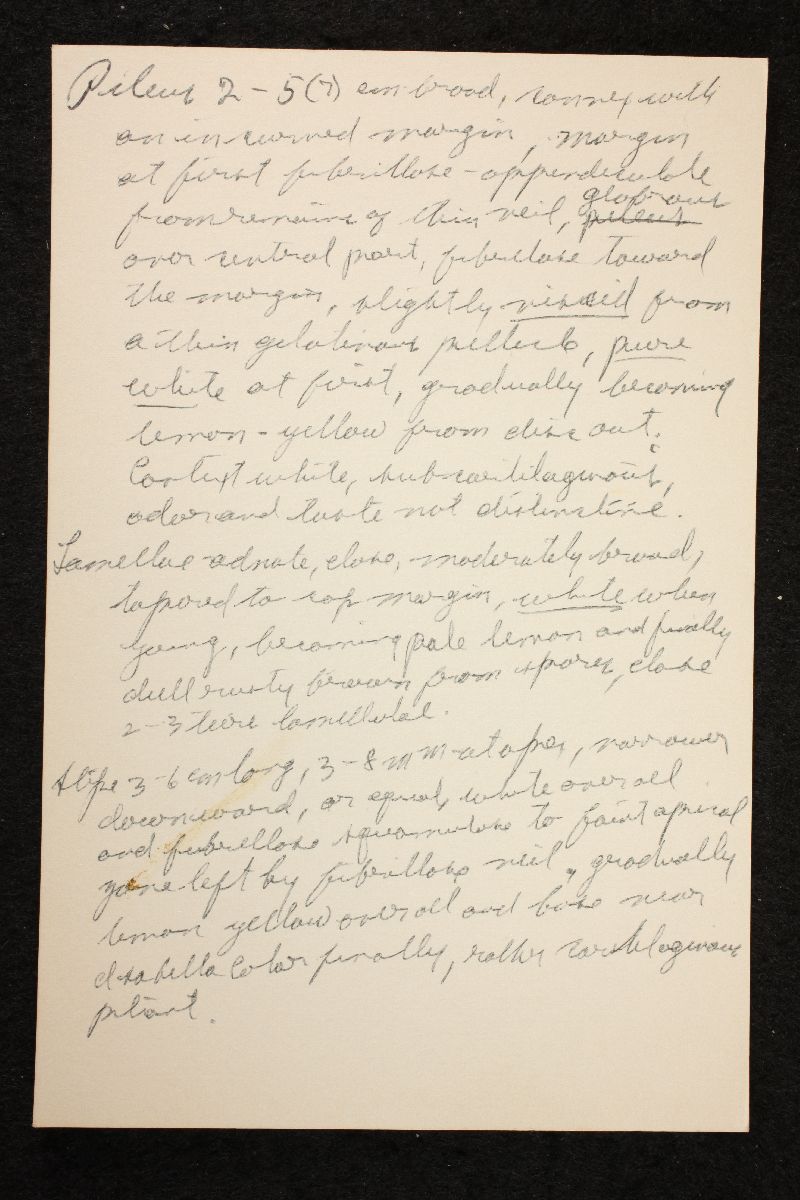 Pileus 2-5(7) cm broad, convex with
an incurved margin, margin
at first fibrillose-appendiculate
from remains of thin veil, glabrous pileus
over central part, fibrillose toward
the margin, slightly viscid from
a thin gelatinous pellicle, pure
white at first, gradually becoming
lemon-yellow from disc out.
Context white, subcartilaginous,
odor and taste not distinctive.
Lamellae adnate, close, moderately broad,
tapered to cap margin, white when
young, becoming pale lemon and finally
dull rusty brown from spores, close
2-3 tiers lamellulae.
Stipe 3-6 cm long, 3-8 mm at apex, narrower
downward, or equal, white over all
and fibrillose squamulose to faint apical
zone left by fibrillose veil, gradually
lemon yellow over all and base near
Isabella Color finally, rather cartilaginous
pliant.